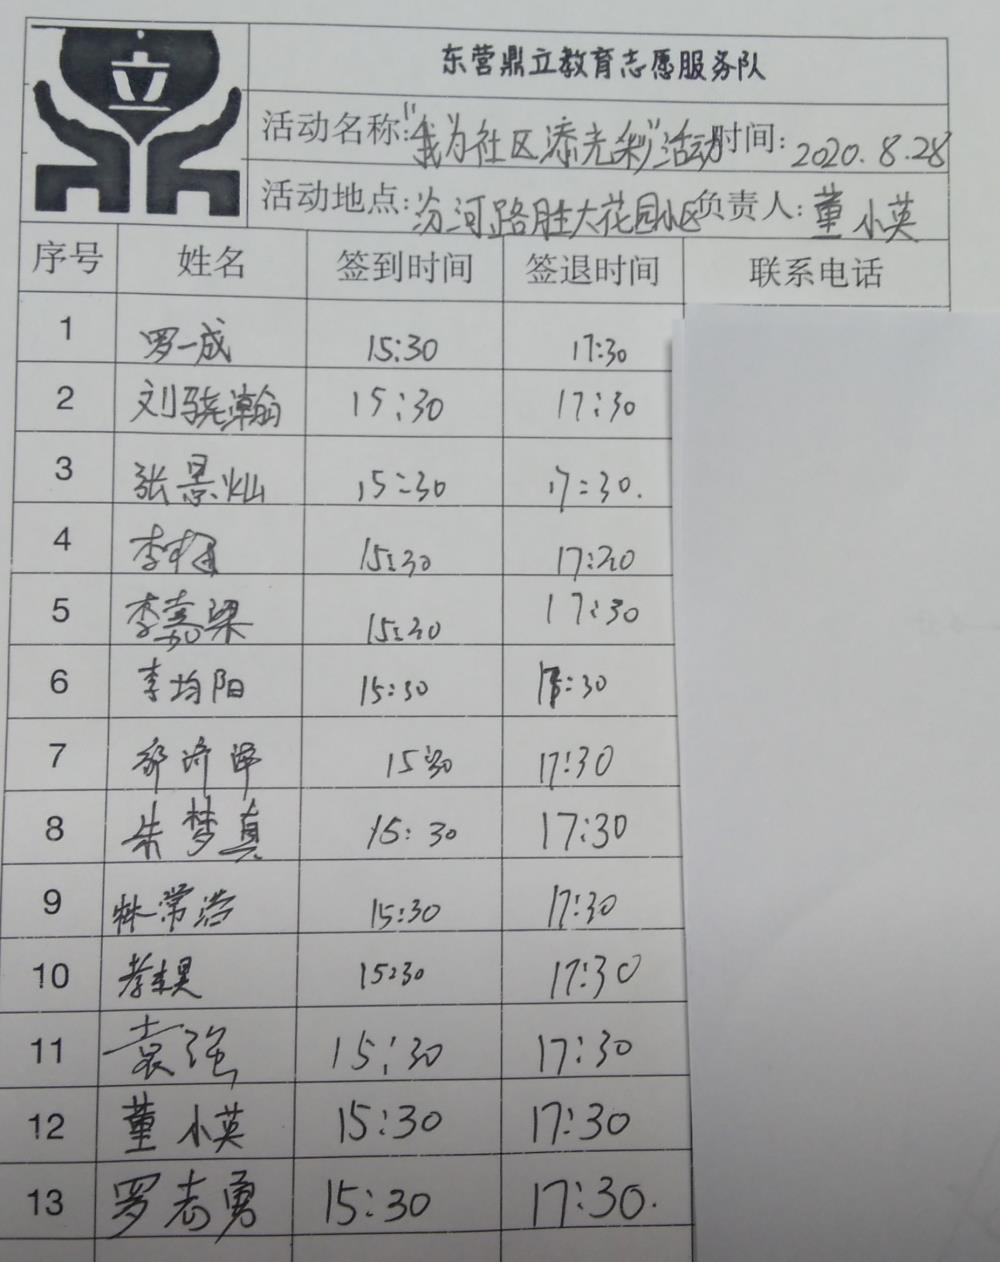 立
东营鼎立教育志愿服务队
活动名称:"我为社区添光彩"活动 时间: 2020.8.28
活动地点: 汾河路胜大花园小区 负责人: 董小英
序号 姓名 签到时间 签退时间 联系电话
1 罗一成 15:30 17:30
2 刘骁瀚 15:30 17:30
3 张景灿 15:30 17:30.
4 李 15:30 17:30
5 李嘉梁 15:30 17:30
6 李均阳 15:30 17:30
7 15:30 17:30
8 朱梦真 15:30 17:30
9 林常浩 15:30 17:30
10 15:30 17:30
11 袁强 15:30 17:30
12 董小英 15:30 17:30
13 罗志勇 15:30 17:30.